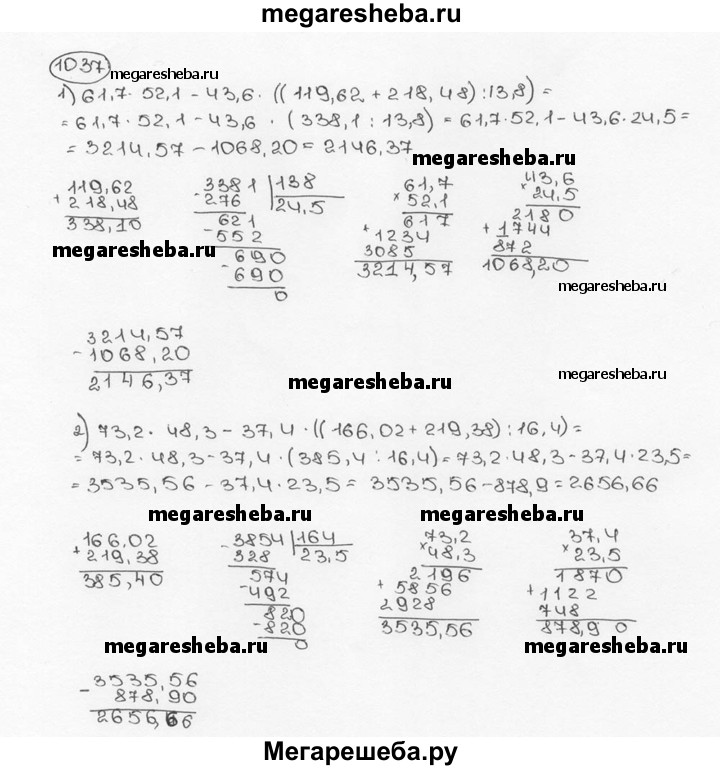 megaresheba.ru
1037 megaresheba.ru
1) 61,7 · 52,1 - 43,6 · ((119,62 + 218,48) : 13,8) =
= 61,7 · 52,1 - 43,6 · (338,1 : 13,8) = 61,7 · 52,1 - 43,6 · 24,5 =
= 3214,57 - 1068,20 = 2146,37
megaresheba.ru
119,62
+ 218,48
338,10
3381 | 138
- 276 24,5
621
- 552
690
- 690
0
61,7
× 52,1
617
+ 1234
3085
3214,57
43,6
× 24,5
2180
+ 1744
872
1068,20
megaresheba.ru
megaresheba.ru
3214,57
- 1068,20
2146,37
megaresheba.ru
megaresheba.ru
2) 73,2 · 48,3 - 37,4 · ((166,02 + 219,38) : 16,4) =
= 73,2 · 48,3 - 37,4 · (385,4 : 16,4) = 73,2 · 48,3 - 37,4 · 23,5 =
= 3535,56 - 37,4 · 23,5 = 3535,56 - 878,9 = 2656,66
megaresheba.ru
megaresheba.ru
166,02
+ 219,38
385,40
3854 | 164
- 328 23,5
574
- 492
820
- 820
0
73,2
× 48,3
2196
+ 5856
2928
3535,56
37,4
× 23,5
1870
+ 1122
748
878,90
megaresheba.ru
megaresheba.ru
megaresheba.ru
3535,56
- 878,90
2656,66
Мегарешеба.ру